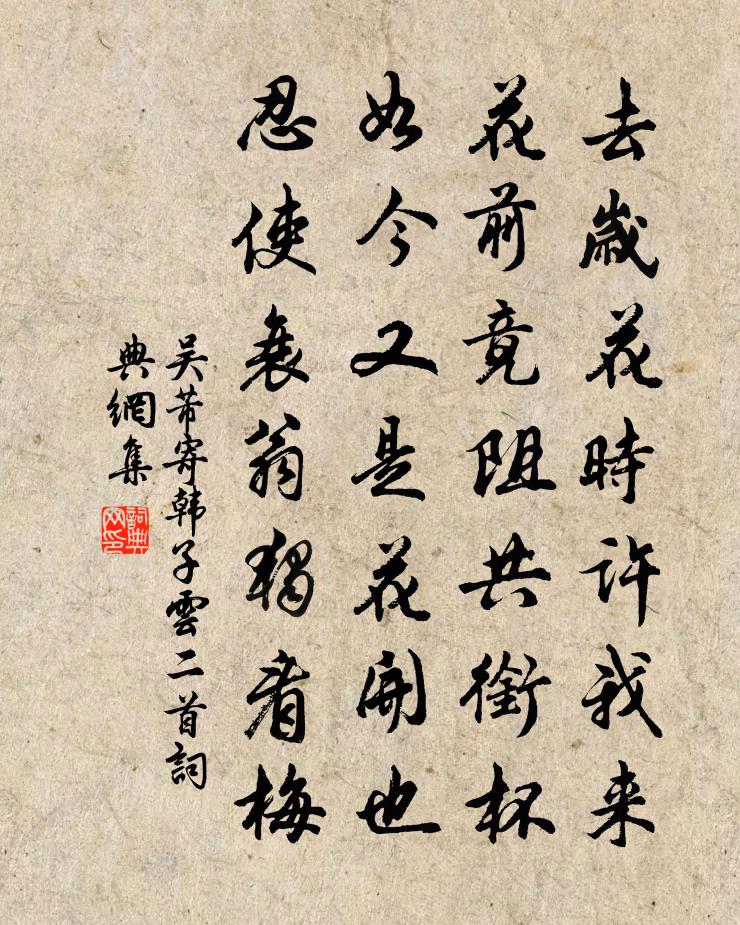 去歲花時許我来
花前竟阻共銜杯
如今又是花開也
忍使衰翁獨看梅
吴芾寄韩子雲二首詞
典網集
詞典
网印